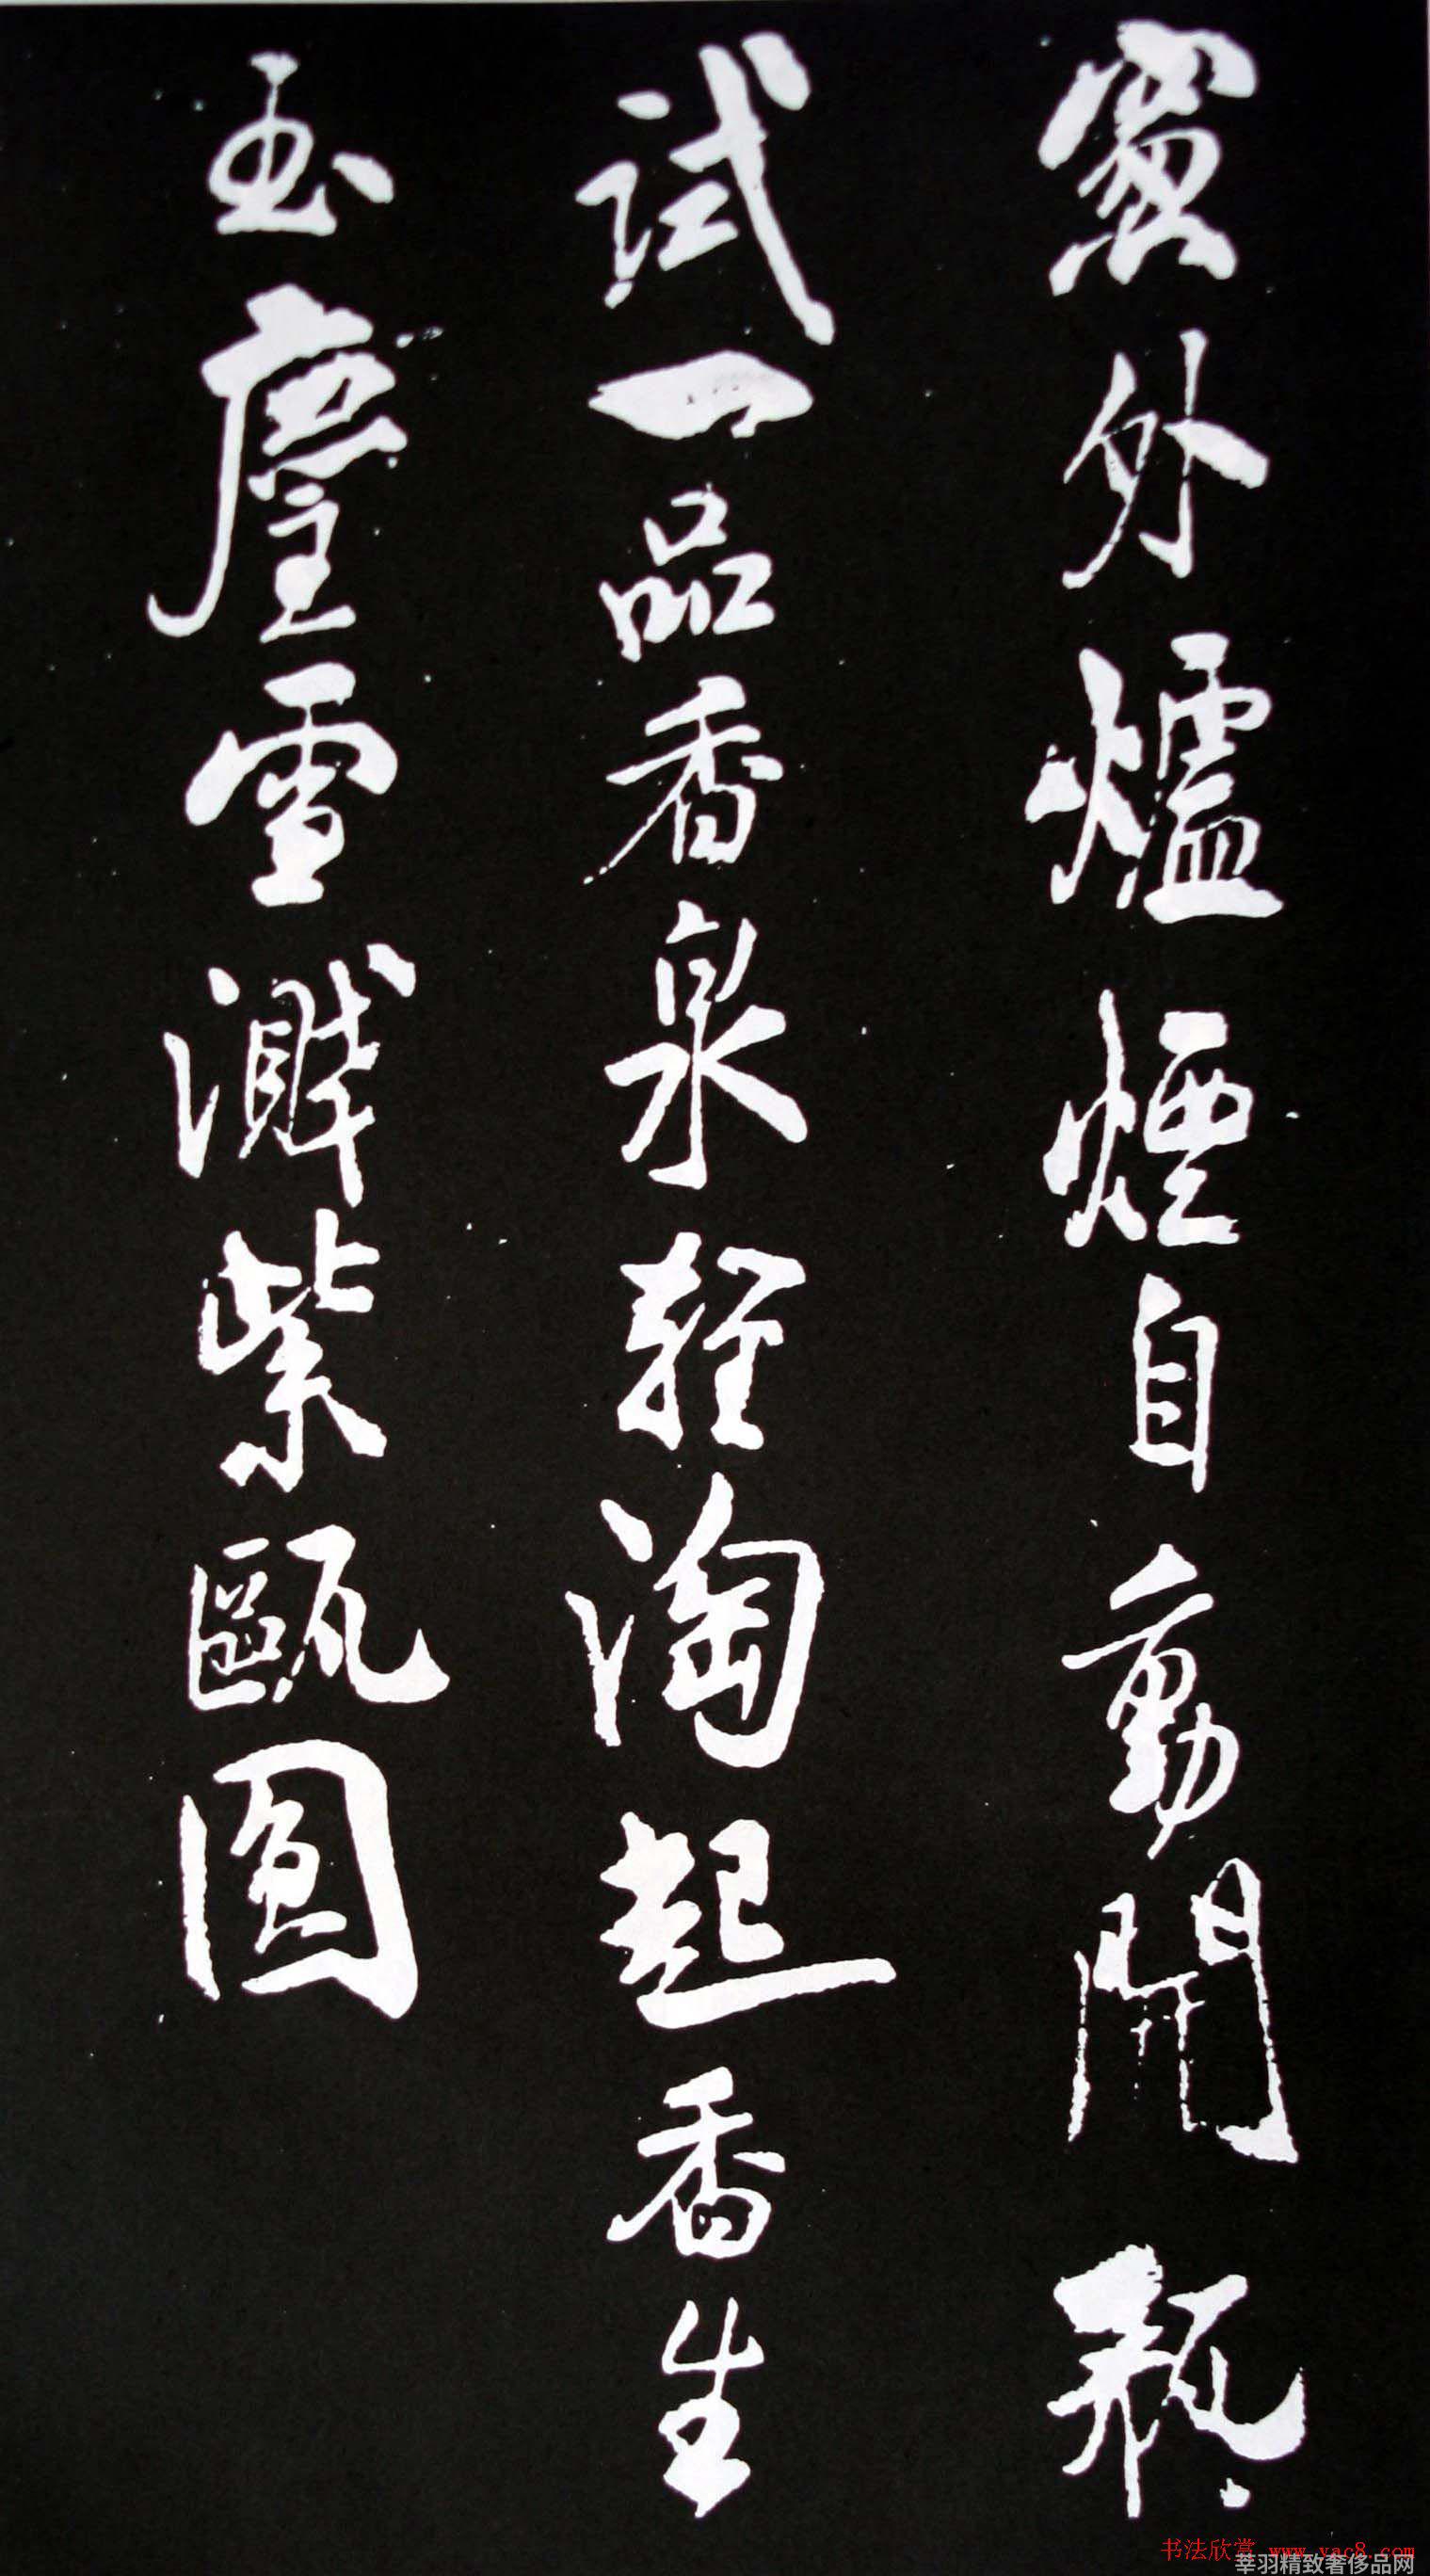 窻外爐煙自動開瓶
試一品香泉輕淘起香生
玉塵雪濺紫甌圓
书法欣赏 www.yac8.com
莘羽精致奢侈品网